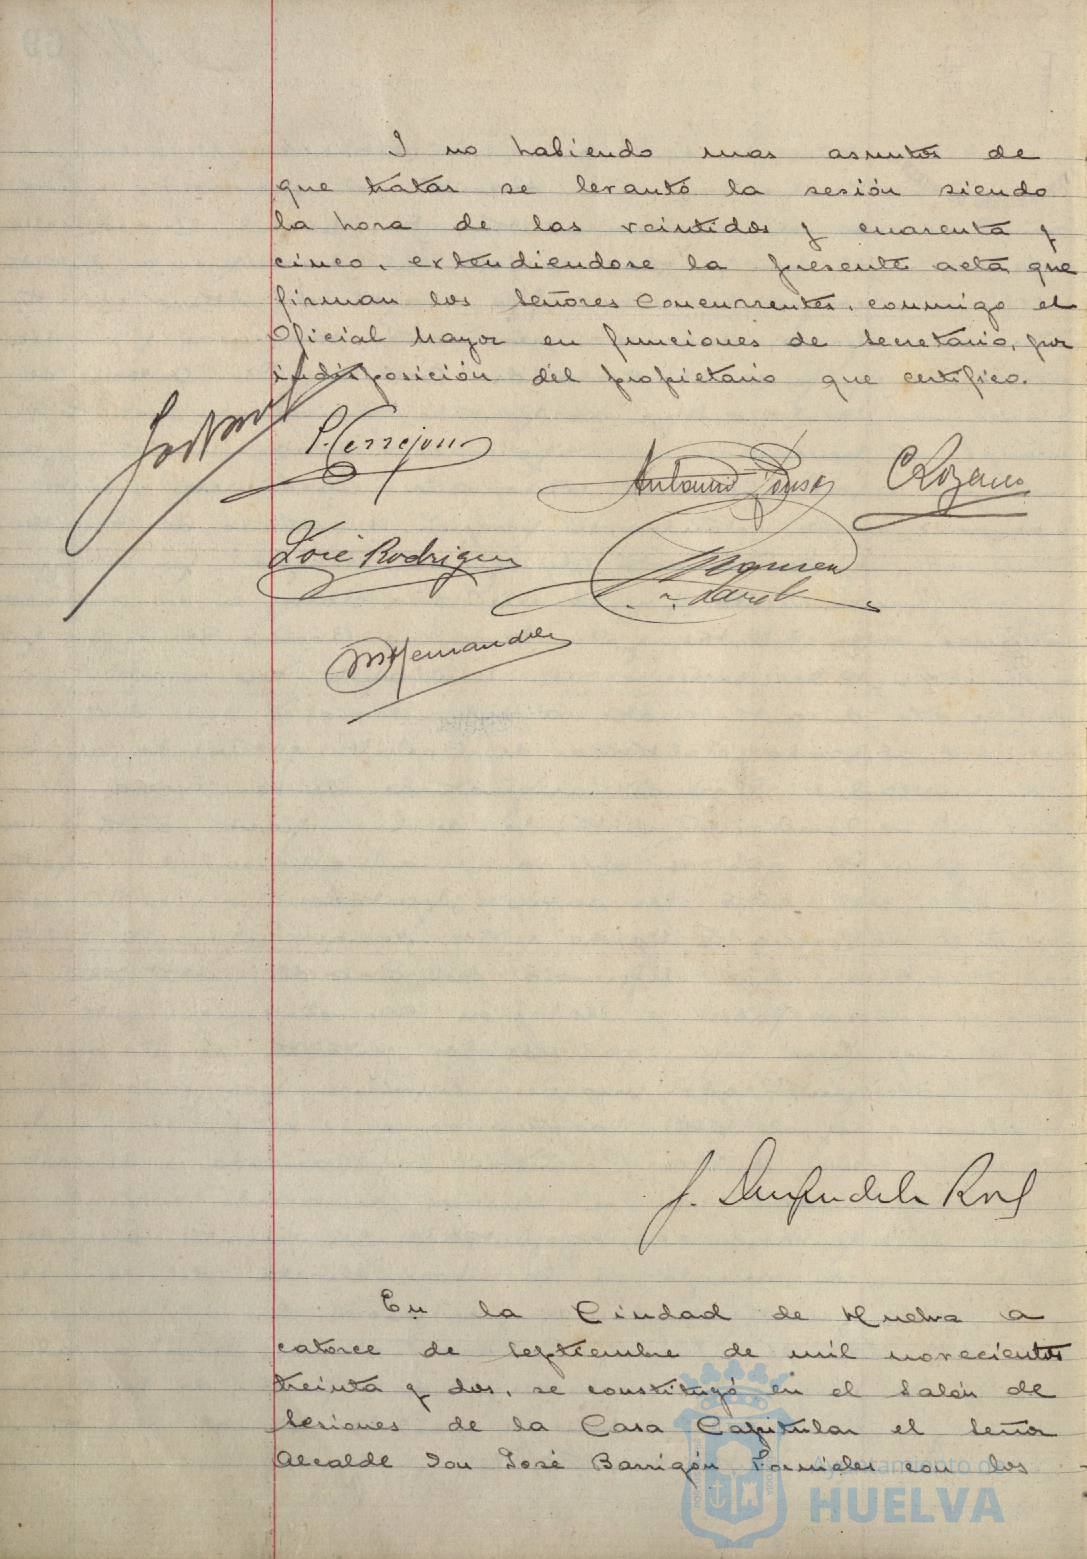 I no habiendo mas asuntos de
que tratar se levantó la sesión siendo
la hora de las veintidos y cuarenta y
cinco, extendiendose la presente acta que
firman los Señores Concurrentes, conmigo el
Oficial Mayor en funciones de Secretario, por
indisposición del propietario que certifico.
P. Cerrejon
C Lozano
José Rodriguez
M Hernandez
En la Ciudad de Huelva a
catorce de Septiembre de mil novecientos
treinta y dos, se constituyó en el Salón de
Sesiones de la Casa Capitular el Señor
Alcalde Don José Barrigón Fornieles con los
Ayuntamiento de
HUELVA